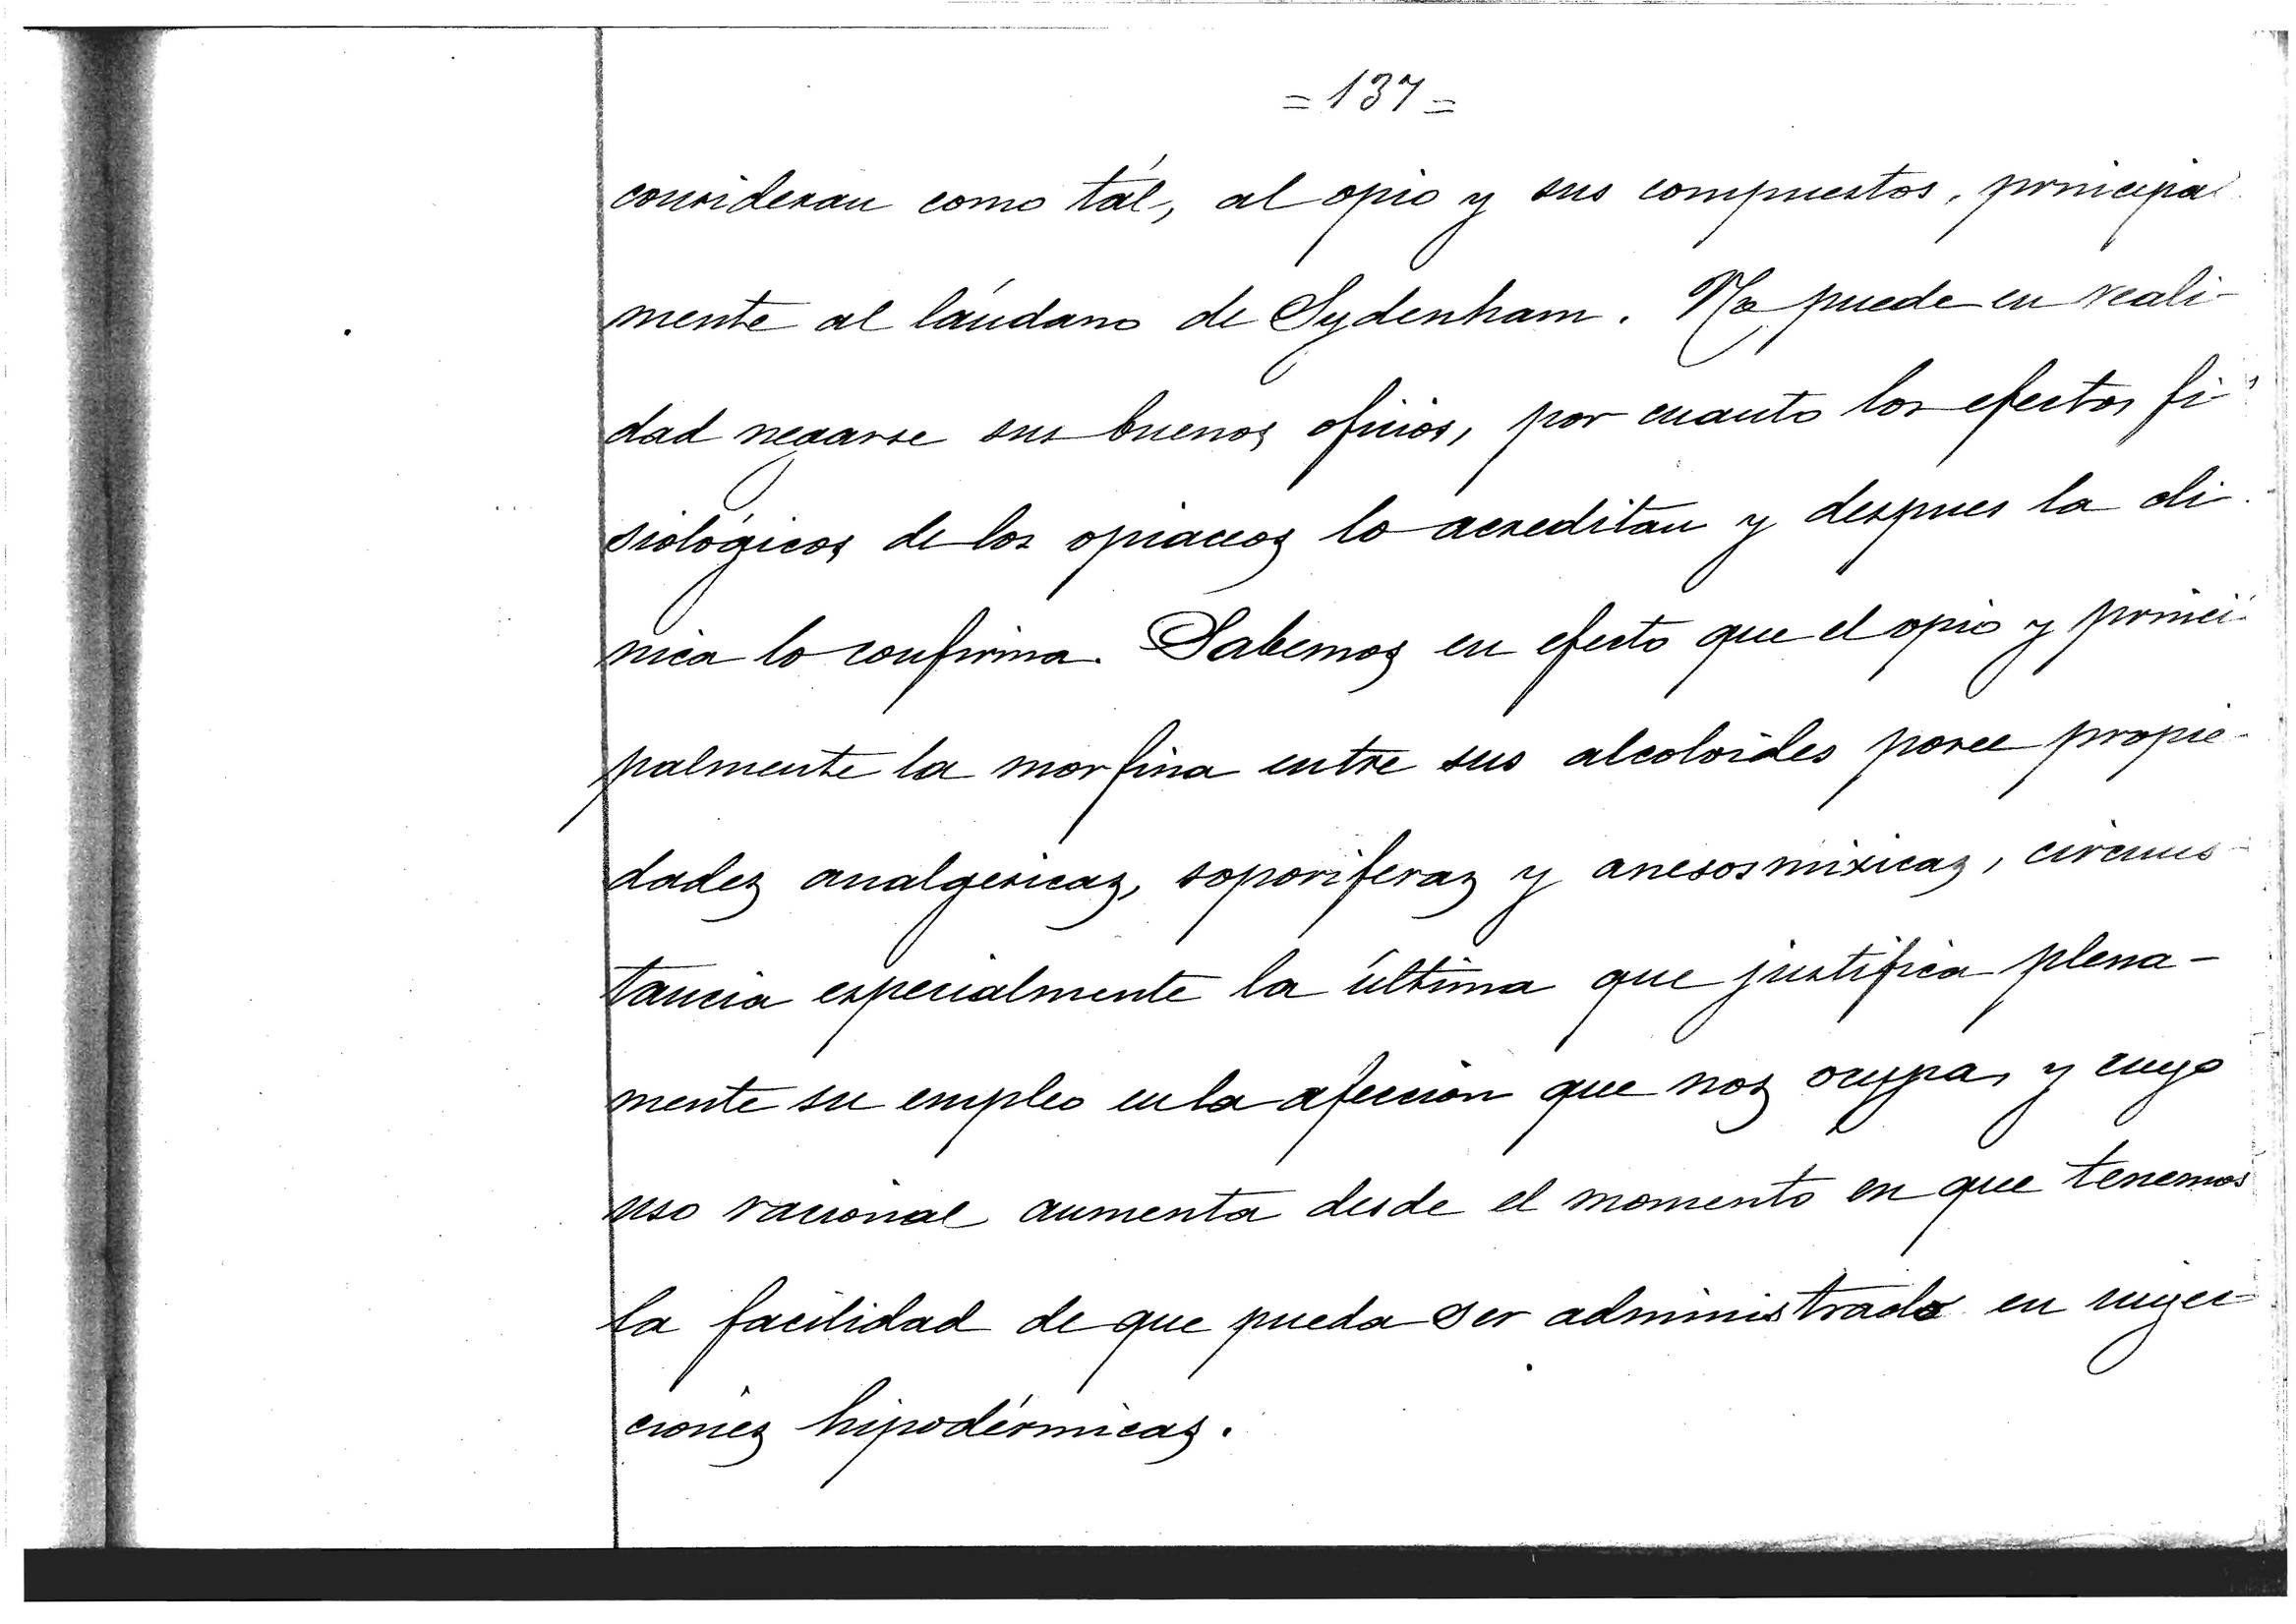 = 137 =
consideran como tál, al opio y sus compuestos, principal
mente al láudano de Sydenham. No puede en reali-
dad negarse sus buenos oficios, por cuanto los efectos fi-
siológicos de los opiaceos lo acreditan y despues la cli-
nica lo confirma. Sabemos en efecto que el opio y princi-
palmente la morfina entre sus alcoloides posee propie-
dades analgesicas, soporiferas y anesosmixicas, circuns-
tancia especialmente la última que justifica plena-
mente su empleo en la afeccion que nos ocupa, y cuyo
uso racional aumenta desde el momento en que tenemos
la facilidad de que pueda ser administrado en inyec-
ciones hipodérmicas.